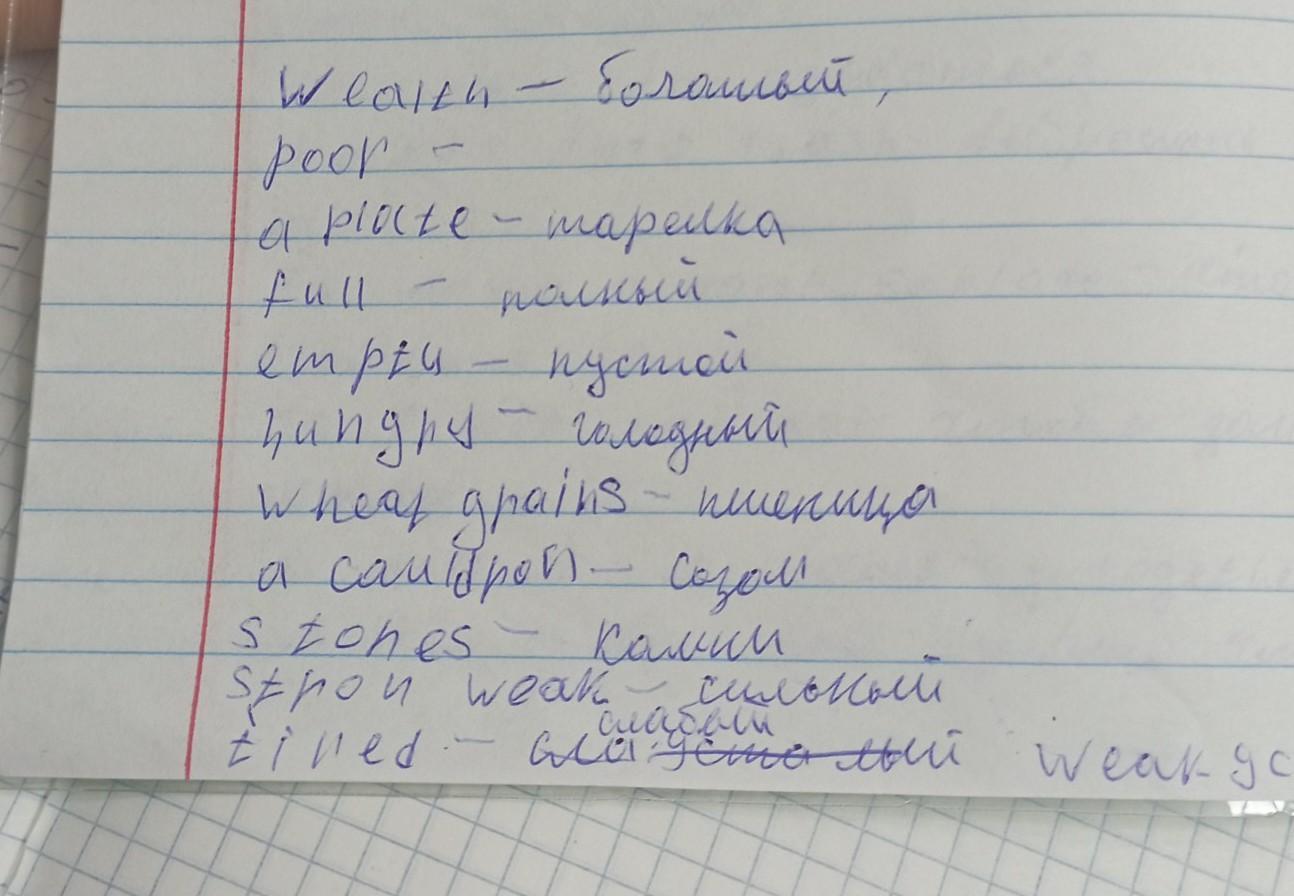 Wealth – богатый,
poor –
a plate – тарелка
full – полный
empty – пустой
hungry – голодный
wheat grains – пшеница
a cauldron –
stones – камни
stron weak – сильный
слабый
tired – weak